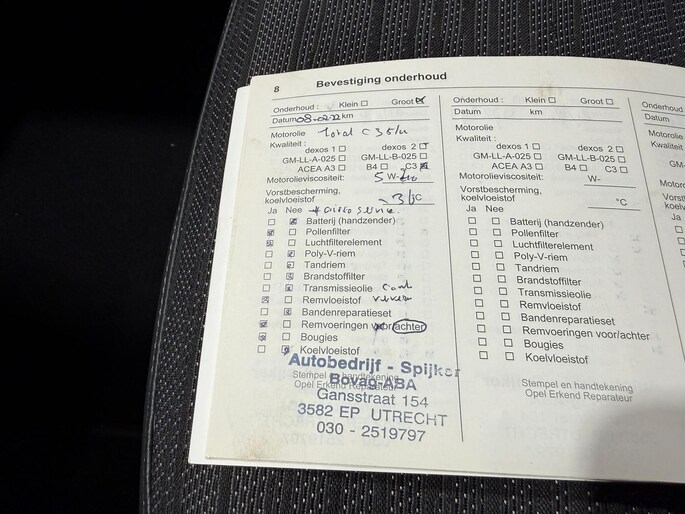 8 Bevestiging onderhoud
Onderhoud : Klein ☐ Groot ☒
Datum 08-02-22 km
Motorolie Total C3 5/
Kwaliteit :
dexos 1 ☐ dexos 2 ☐
GM-LL-A-025 ☐ GM-LL-B-025 ☐
ACEA A3 ☐ B4 ☐ C3 ☒
Motorolieviscositeit: 5 W-
Vorstbescherming,
koelvloeistof °C
Ja Nee
☐ ☒ Batterij (handzender)
☒ ☐ Pollenfilter
☒ ☐ Luchtfilterelement
☐ ☒ Poly-V-riem
☐ ☒ Tandriem
☐ ☒ Brandstoffilter
☐ ☒ Transmissieolie
☒ ☐ Remvloeistof
☐ ☒ Bandenreparatieset
☒ ☐ Remvoeringen voor/achter
☒ ☐ Bougies
☐ ☒ Koelvloeistof
Stempel en handtekening
Opel Erkend Reparateur
Autobedrijf - Spijker
Bovag-ABA
Gansstraat 154
3582 EP UTRECHT
030 - 2519797
Onderhoud : Klein ☐ Groot ☐
Datum km
Motorolie
Kwaliteit :
dexos 1 ☐ dexos 2 ☐
GM-LL-A-025 ☐ GM-LL-B-025 ☐
ACEA A3 ☐ B4 ☐ C3 ☐
Motorolieviscositeit: W-
Vorstbescherming,
koelvloeistof °C
Ja Nee
☐ ☐ Batterij (handzender)
☐ ☐ Pollenfilter
☐ ☐ Luchtfilterelement
☐ ☐ Poly-V-riem
☐ ☐ Tandriem
☐ ☐ Brandstoffilter
☐ ☐ Transmissieolie
☐ ☐ Remvloeistof
☐ ☐ Bandenreparatieset
☐ ☐ Remvoeringen voor/achter
☐ ☐ Bougies
☐ ☐ Koelvloeistof
Stempel en handtekening
Opel Erkend Reparateur
Onderhoud
Datum
Motorolie
Kwaliteit :